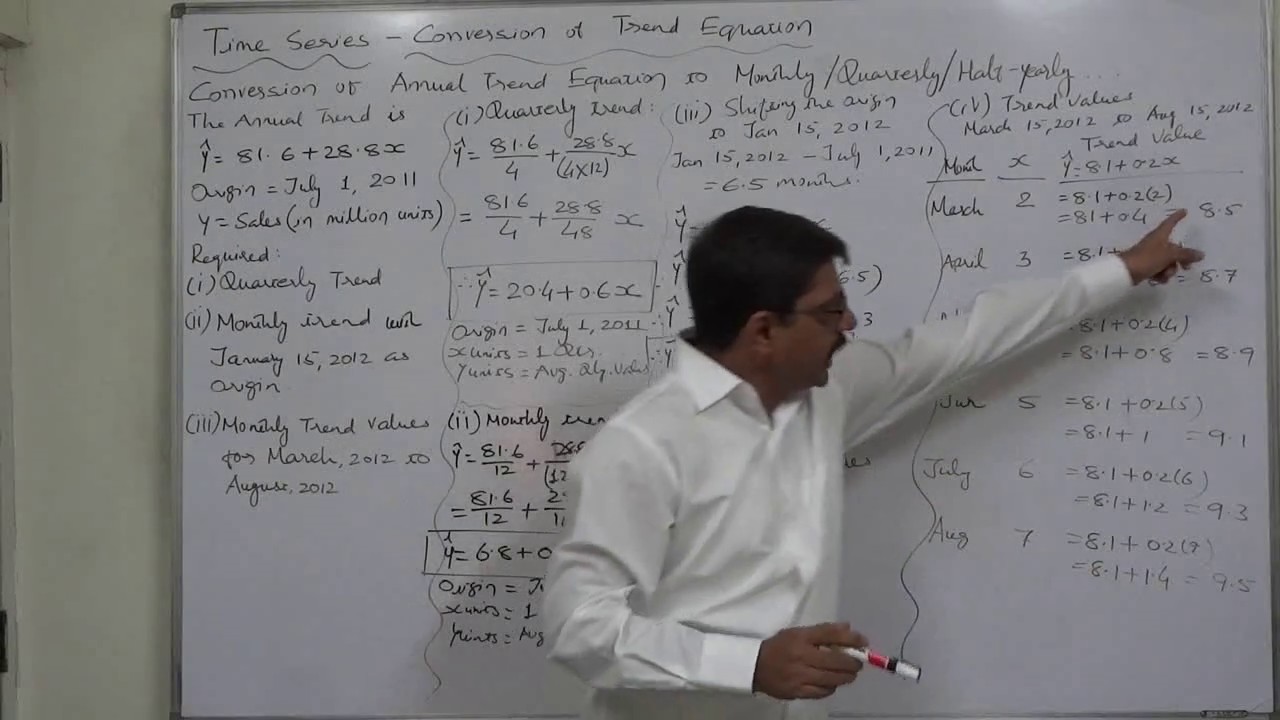 Time Series – Conversion of Trend Equation
Conversion of Annual Trend Equation to Monthly/Quarterly/Half-yearly ...
The Annual Trend is
Ŷ = 81.6 + 28.8x
Origin = July 1, 2011
Y = Sales (in million units)
Required:
(i) Quarterly Trend
(ii) Monthly trend with
January 15, 2012 as
origin.
(iii) Monthly Trend Values
for March, 2012 to
August, 2012
(i) Quarterly trend:
Ŷ = 81.6/4 + 28.8/(4×12) x
= 81.6/4 + 28.8/48 x
∴ Ŷ = 20.4 + 0.6x
Origin = July 1, 2011
x units = 1 Qtr.
Y units = Avg. Qly. Values
(ii) Monthly
Ŷ = 81.6/12 +
= 81.6/12 +
Ŷ = 6.8 +
Origin =
x units = 1
Y units = Avg
(iii) Shifting the origin
to Jan 15, 2012
Jan 15, 2012 – July 1, 2011
= 6.5 months.
Ŷ =
Ŷ 6.5)
∴ Ŷ 3
∴ Ŷ
(iv) Trend Values
March 15, 2012 to Aug 15, 2012
Trend Value
Month x Ŷ = 8.1 + 0.2x
March 2 = 8.1 + 0.2(2)
= 8.1 + 0.4 = 8.5
April 3 = 8.1 +
= 8.7
= 8.1 + 0.2(4)
= 8.1 + 0.8 = 8.9
Jun 5 = 8.1 + 0.2(5)
= 8.1 + 1 = 9.1
July 6 = 8.1 + 0.2(6)
= 8.1 + 1.2 = 9.3
Aug 7 = 8.1 + 0.2(7)
= 8.1 + 1.4 = 9.5